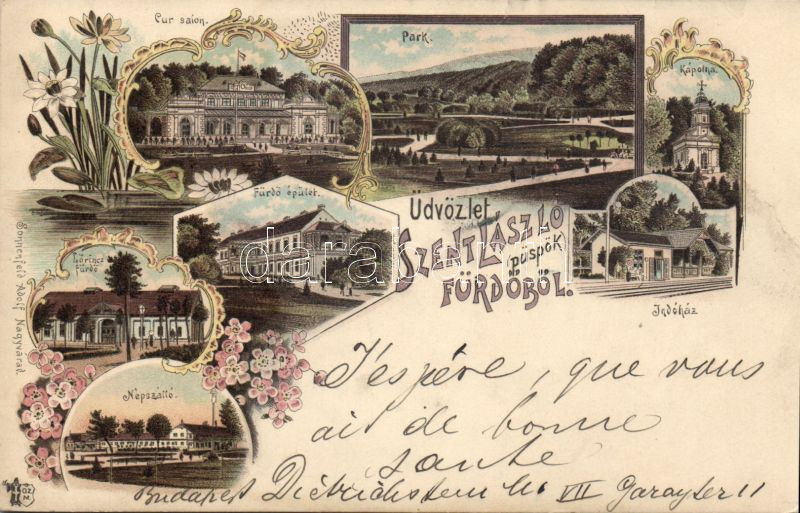 Cur salon.
Park.
Kápolna.
Fürdő épület.
Üdvözlet
SZENT LÁSZLÓ
(püspök)
FÜRDŐBŐL.
Lőrincz
fürdő
Indóház
Népszálló.
Sonnenfeld Adolf Nagyvárad.
J'espére, que vous
ais de bonne
sante
Budapest Dietrichstein M VII Garayter 11
darabanth